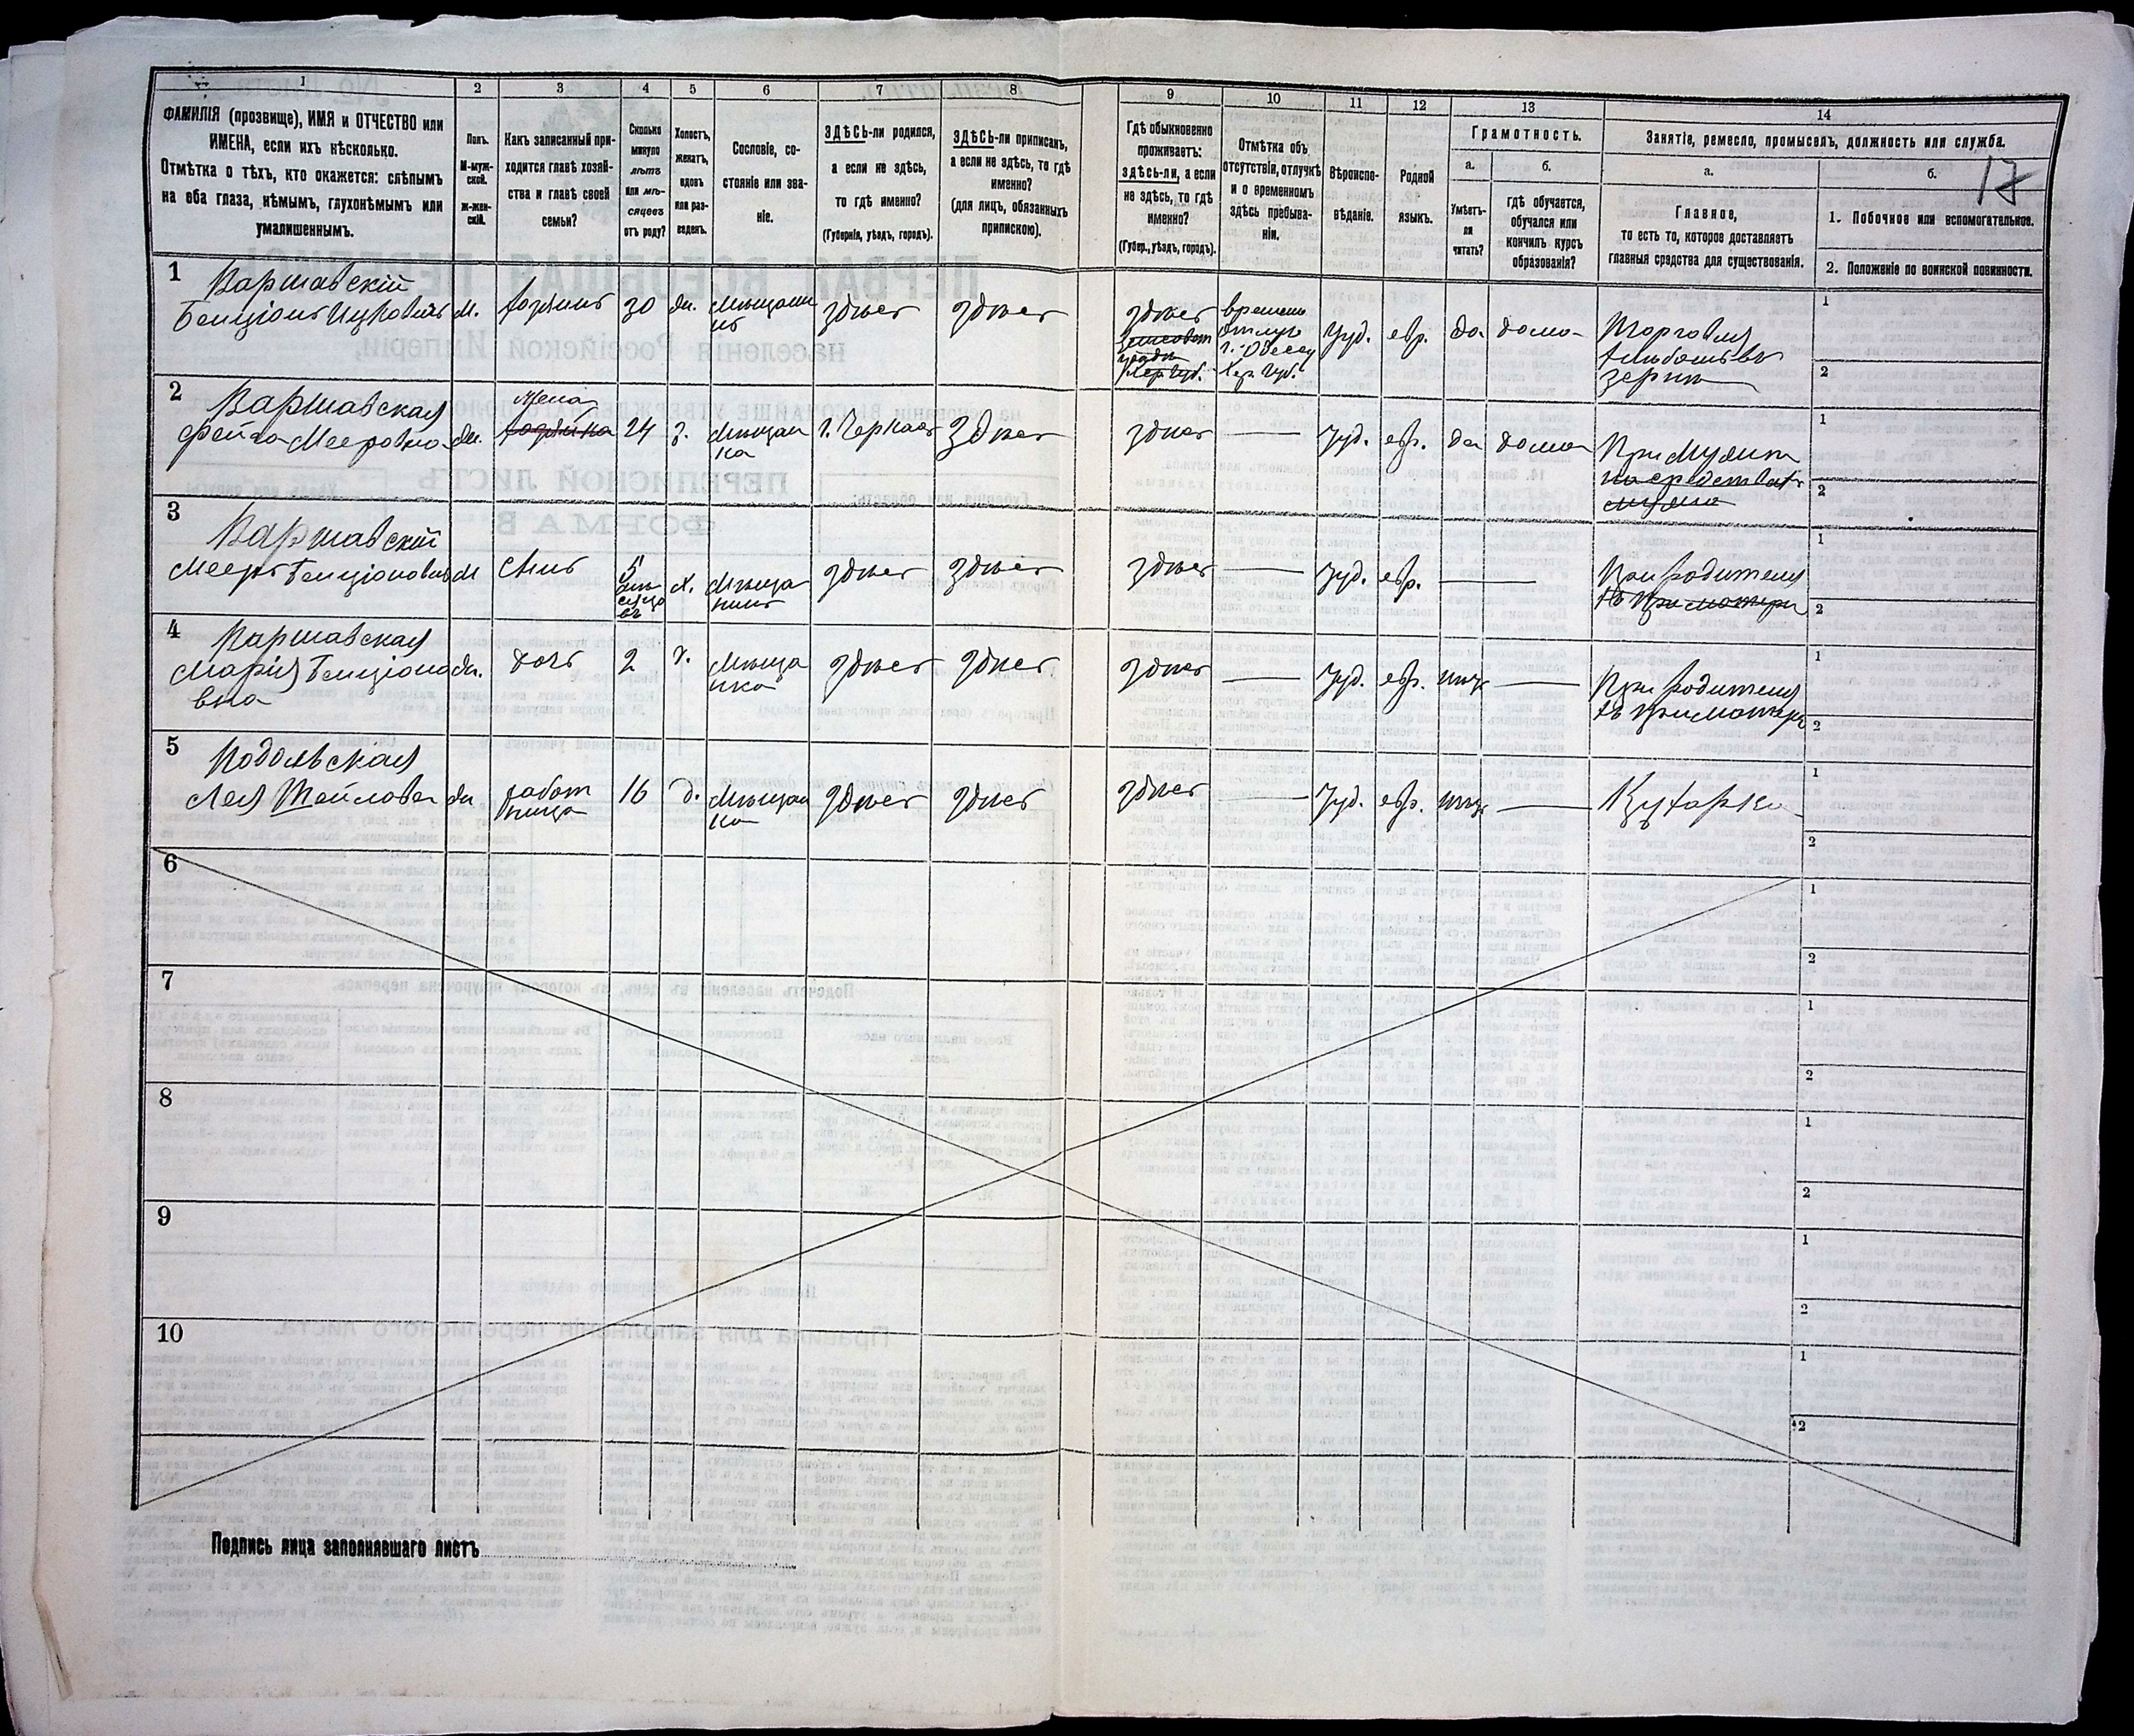 1 2 3 4 5 6 7 8 9 10 11 12 13 14
17
ФАМИЛІЯ (прозвище), ИМЯ и ОТЧЕСТВО или
ИМЕНА, если ихъ нѣсколько.
Отмѣтка о тѣхъ, кто окажется: слѣпымъ
на оба глаза, нѣмымъ, глухонѣмымъ или
умалишеннымъ.
Полъ.
М-муж-
ской.
ж-жен-
скій.
Какъ записанный при-
ходится главѣ хозяй-
ства и главѣ своей
семьи?
Сколько
минуло
лѣтъ
или мѣ-
сяцевъ
отъ роду?
Холостъ,
женатъ,
вдовъ
или раз-
веденъ.
Сословіе, со-
стояніе или зва-
ніе.
ЗДѢСЬ-ли родился,
а если не здѣсь,
то гдѣ именно?
(Губернія, уѣздъ, городъ).
ЗДѢСЬ-ли приписанъ,
а если не здѣсь, то гдѣ
именно?
(для лицъ, обязанныхъ
припискою).
Гдѣ обыкновенно
проживаетъ:
здѣсь-ли, а если
не здѣсь, то гдѣ
именно?
(Губер., уѣздъ, городъ).
Отмѣтка объ
отсутствіи, отлучкѣ
и о временномъ
здѣсь пребыва-
ніи.
Вѣроиспо-
вѣданіе.
Родной
языкъ.
Грамотность.
а.
Умѣетъ-
ли
читать?
б.
гдѣ обучается,
обучался или
кончилъ курсъ
образованія?
Занятіе, ремесло, промыселъ, должность или служба.
а.
Главное,
то есть то, которое доставляетъ
главныя средства для существованія.
б.
1. Побочное или вспомогательное.
2. Положеніе по воинской повинности.
1
Варшавскій
Бенціонъ Ицковичъ
М.
хозяинъ
30
жн.
мѣщани
нъ
здѣсь
здѣсь
здѣсь
времен
отлуч
г. Одесу
Хер. губ.
Іуд.
евр.
да
дома
Торговля
хлѣбомъ въ
зернѣ
1
2
2
Варшавская
Фейга Мееровна
жн.
жена
хозяйка
24
з.
мѣщан
ка
г. Черкасс
здѣсь
здѣсь
Іуд.
евр.
да
дома
При мужѣ
на средствах
мужа
1
2
3
Варшавскій
Мееръ Бенціоновичъ
М
сынъ
5
мѣ
сяцо
въ
х.
мѣща
нинъ
здѣсь
здѣсь
здѣсь
Іуд.
евр.
При родителя
хъ при матери
1
2
4
Варшавская
Марія Бенціоно
вна
жн.
дочь
2
д.
мѣща
нка
здѣсь
здѣсь
здѣсь
Іуд.
евр.
нѣт
При родителя
хъ при матери
1
2
5
Подольская
Лея Шейлова
жн
работ
ница
16
д.
мѣщан
ка
здѣсь
здѣсь
здѣсь
Іуд.
евр.
нѣт
Кухарка
1
2
6
1
2
7
1
2
8
1
2
9
1
2
10
1
2
Подпись лица заполнявшаго листъ